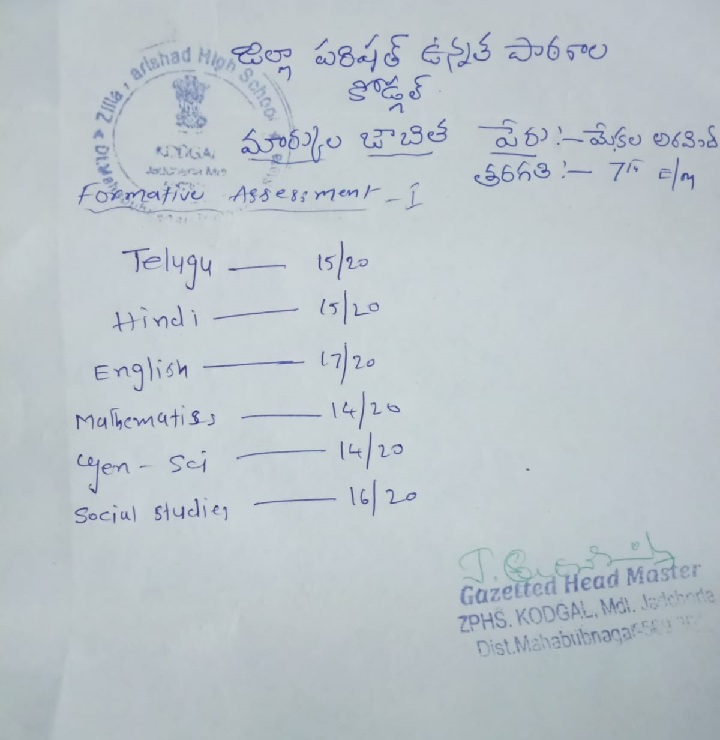 జిల్లా పరిషత్ ఉన్నత పాఠశాల
కోడ్గల్
మార్కుల జాబిత పేరు :- మేకల అరవింద్
తరగతి :- 7th E/M
Zilla Parishad High School
KODGAL
Formative Assessment - I
Telugu — 15/20
Hindi — 15/20
English — 17/20
Mathematics — 14/20
Gen - Sci — 14/20
Social studies — 16/20
Gazetted Head Master
ZPHS. KODGAL, Mdl. Jadcherla
Dist. Mahabubnagar-509